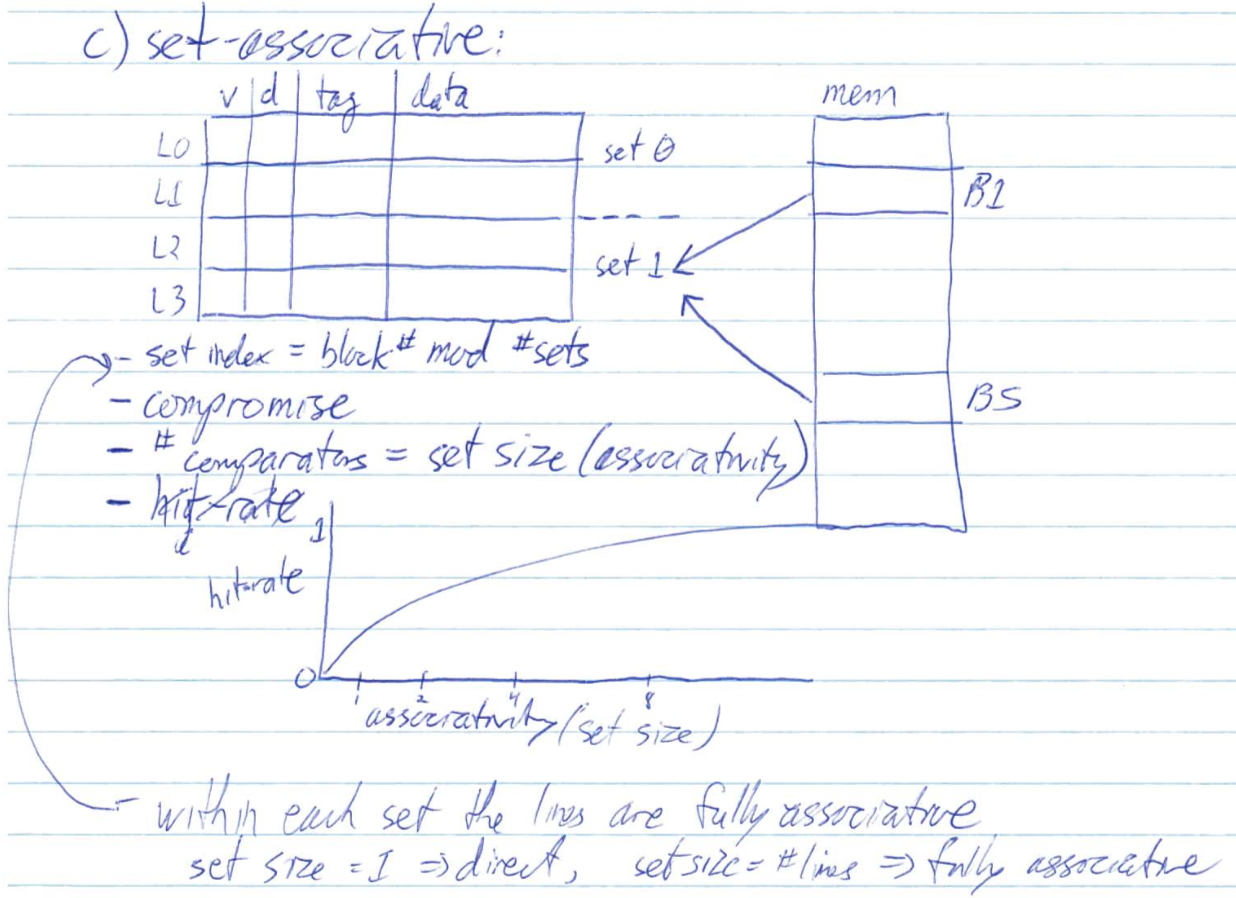 c) set-associative:
v d tag data
mem
L0
set 0
L1
B1
L2
set 1
L3
- set index = block# mod #sets
- compromise
B5
- # comparators = set size (associativity)
- hit-rate
1
hit-rate
0
1 2 4 8
associativity (set size)
- within each set the lines are fully associative
set size = 1 => direct, set size = #lines => fully associative